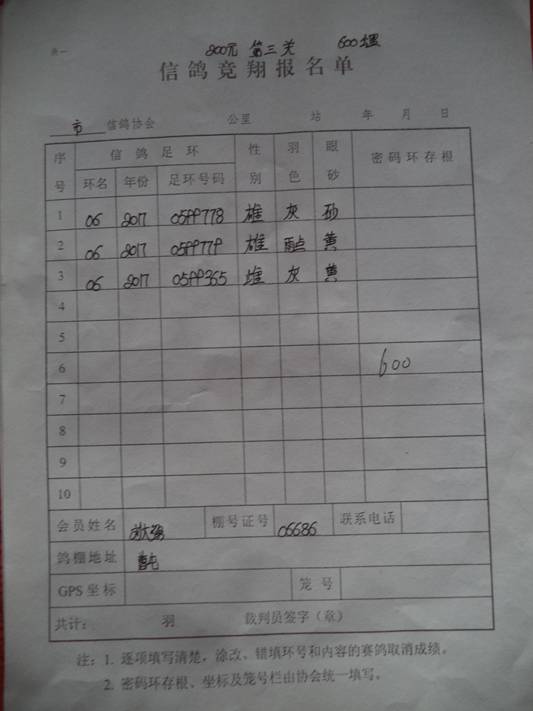 表一
200元 第三关 600堰
信鸽竞翔报名单
市 信鸽协会 公里 站 年 月 日
序号 信鸽足环 性别 羽色 眼砂 密码环存根
环名 年份 足环号码
1 06 2017 0599778 雄 灰 砂
2 06 2017 0599779 雄 雨点 黄
3 06 2017 0599365 雌 灰 黄
4
5
6 600
7
8
9
10
会员姓名 棚号证号 06686 联系电话
鸽棚地址 曹屯
GPS坐标 笼号
共计: 羽 裁判员签字(章)
注:1. 逐项填写清楚,涂改、错填环号和内容的赛鸽取消成绩。
2. 密码环存根、坐标及笼号栏由协会统一填写。